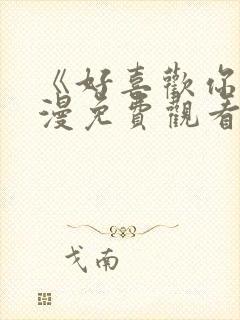 《好喜歡你
漫免費觀看
戈南